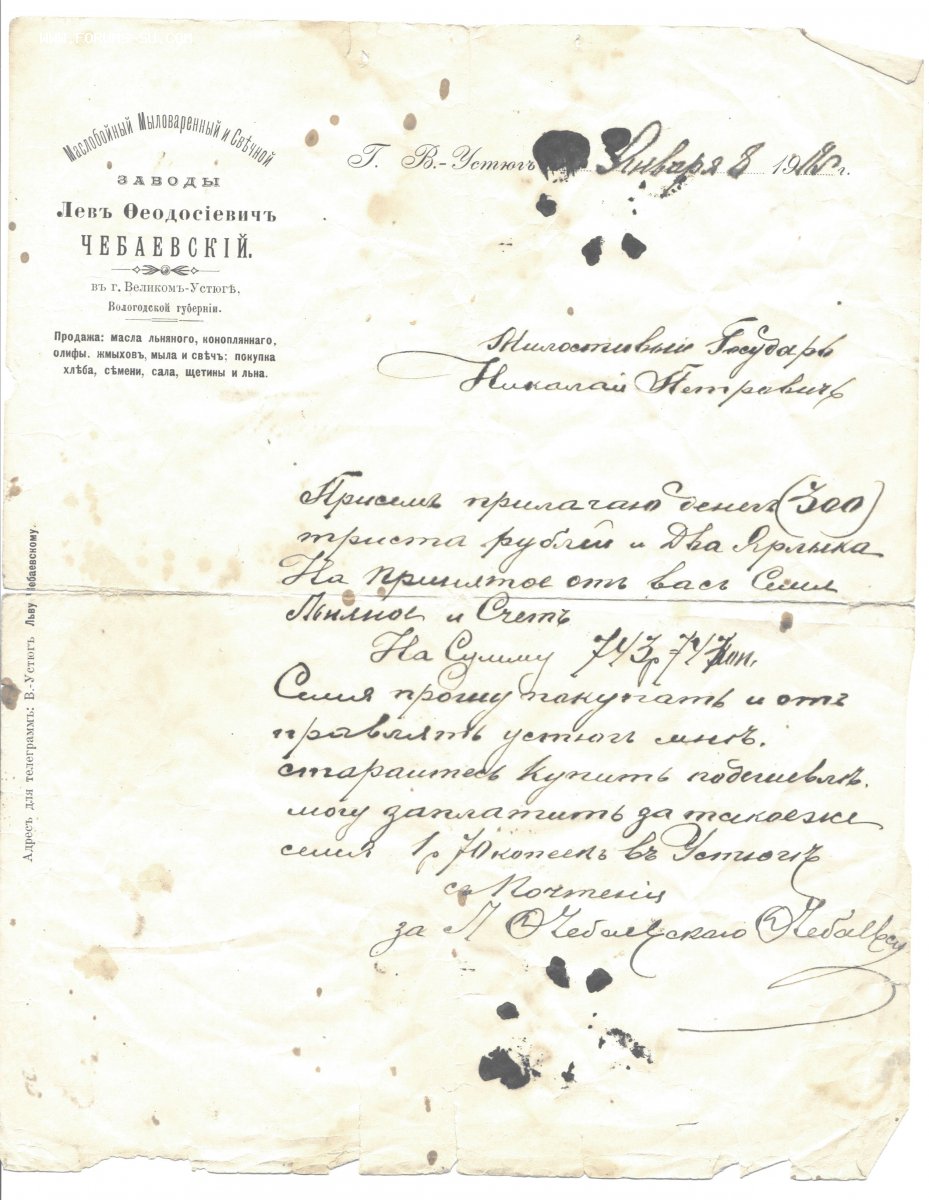 WWW.FORUM-SU.COM
Маслобойный Мыловаренный и Свѣчной
ЗАВОДЫ
Левъ Ѳеодосіевичъ
ЧЕБАЕВСКІЙ.
въ г. Великомъ-Устюгѣ,
Вологодской губерніи.
Продажа: масла льняного, конопляннаго,
олифы, жмыховъ, мыла и свѣчъ; покупка
хлѣба, сѣмени, сала, щетины и льна.
Адресъ для телеграммъ: В.-Устюгъ Льву Чебаевскому.
Г. В.-Устюгъ Января 8 19 г.
Милостивый Государь
Николай Петровичъ
Присемъ прилагаю денегъ (300)
триста рублей и Два Ярлыка
На принятое отъ васъ Семя
Льняное и Счетъ
На Сумму 743р коп.
Семя прошу покупать и отъ
правлять устюгъ мнѣ.
старайтесь Купить подешевлѣ.
могу заплатить за такоеже
семя 1р 70 копеекъ въ Устюгѣ
съ Почтеніи
за Л Ѳ Чебаевскаго